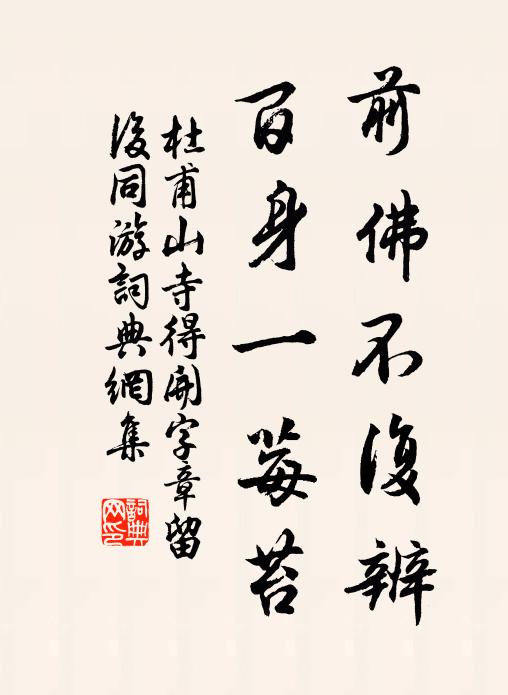 前佛不復辨
百身一莓苔
杜甫山寺得開字章留
後同游詞典網集
詞典网印